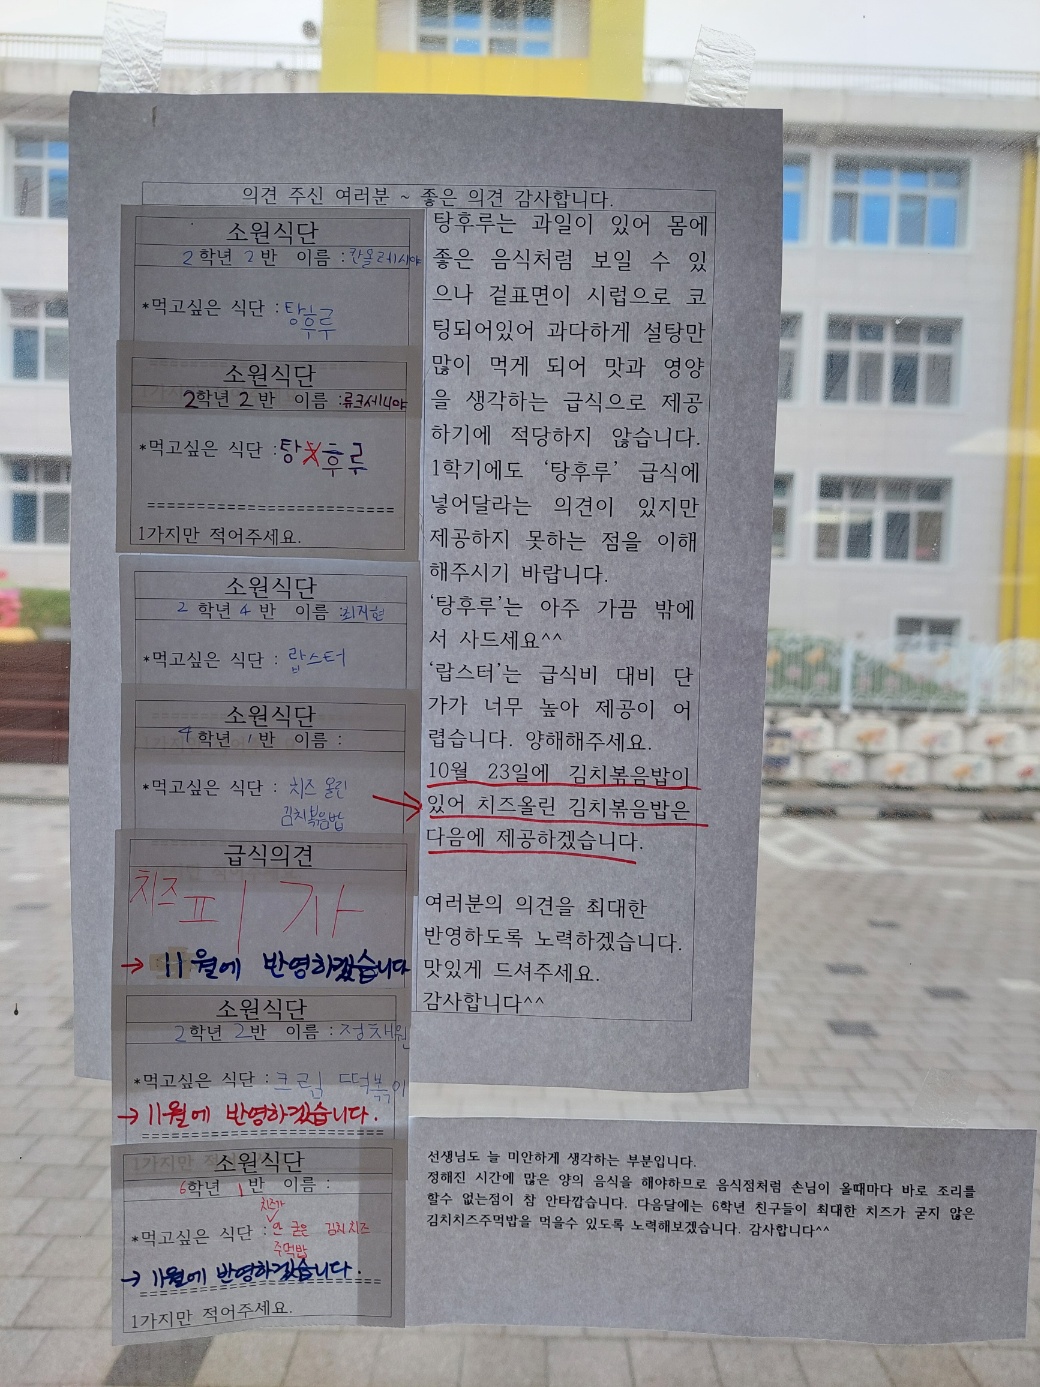 의견 주신 여러분 ~ 좋은 의견 감사합니다.
소원식단
2학년 2반 이름 :칸올레시야
*먹고싶은 식단 : 탕후루
소원식단
2학년 2반 이름 :류크세니야
*먹고싶은 식단 : 탕후루
1가지만 적어주세요.
소원식단
2 학년 4 반 이름 :최지현
*먹고싶은 식단 : 랍스터
소원식단
4학년 1반 이름 :
*먹고싶은 식단 : 치즈 올린
김치볶음밥
급식의견
치즈피자
→ 11월에 반영하겠습니다
소원식단
2학년 2반 이름 : 정채원
*먹고싶은 식단 : 크림 떡볶이
→ 11월에 반영하겠습니다.
1가지만 적
소원식단
6학년 1반 이름 :
치즈가
*먹고싶은 식단 : 안 굳은 김치치즈
주먹밥
→ 11월에 반영하겠습니다.
1가지만 적어주세요.
탕후루는 과일이 있어 몸에
좋은 음식처럼 보일 수 있
으나 겉표면이 시럽으로 코
팅되어있어 과다하게 설탕만
많이 먹게 되어 맛과 영양
을 생각하는 급식으로 제공
하기에 적당하지 않습니다.
1학기에도 ‘탕후루’ 급식에
넣어달라는 의견이 있지만
제공하지 못하는 점을 이해
해주시기 바랍니다.
‘탕후루’는 아주 가끔 밖에
서 사드세요^^
‘랍스터’는 급식비 대비 단
가가 너무 높아 제공이 어
렵습니다. 양해해주세요.
10월 23일에 김치볶음밥이
있어 치즈올린 김치볶음밥은
다음에 제공하겠습니다.
여러분의 의견을 최대한
반영하도록 노력하겠습니다.
맛있게 드셔주세요.
감사합니다^^
선생님도 늘 미안하게 생각하는 부분입니다.
정해진 시간에 많은 양의 음식을 해야하므로 음식점처럼 손님이 올때마다 바로 조리를
할수 없는점이 참 안타깝습니다. 다음달에는 6학년 친구들이 최대한 치즈가 굳지 않은
김치치즈주먹밥을 먹을수 있도록 노력해보겠습니다. 감사합니다^^